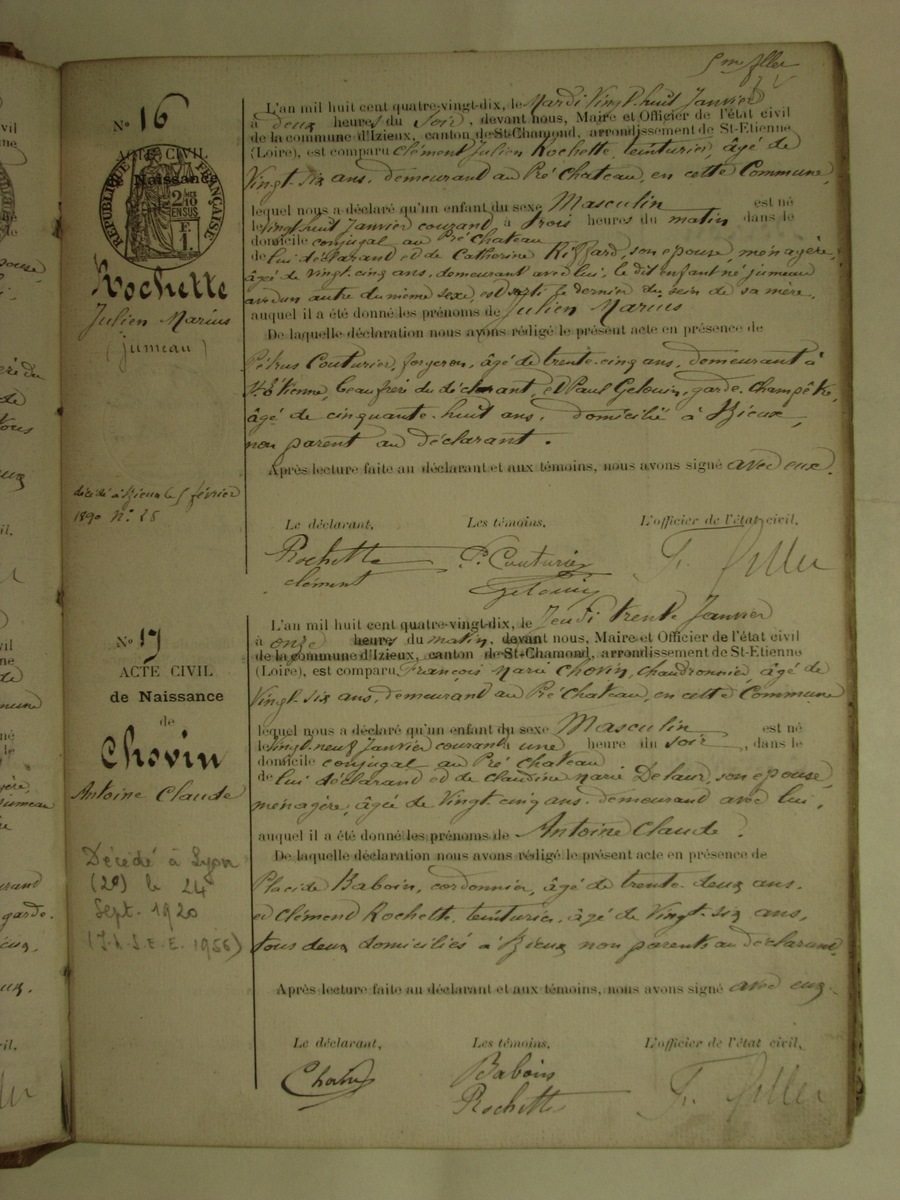 5me fllet
N° 16
ACTE CIVIL
Naissance
RÉPUBLIQUE FRANÇAISE
2/10
EN SUS
F.
1
Rochette
Julien Marius
(jumeau)
décédé à Izieux le 5 février
1890 N° 28
L'an mil huit cent quatre-vingt-dix, le Mardi Vingt-huit Janvier
à deux heures du Soir, devant nous, Maire et Officier de l'état civil
de la commune d'Izieux, canton de St-Chamond, arrondissement de St-Etienne
(Loire), est comparu Clément Julien Rochette, teinturier, âgé de
Vingt-six ans, demeurant au Pré Chateau, en cette Commune,
lequel nous a déclaré qu'un enfant du sexe Masculin est né
le vingt huit Janvier courant à trois heures du matin dans le
domicile conjugal au Pré Chateau
de lui déclarant et de Catherine Riffard, son epouse, ménagère,
âgée de vingt-cinq ans, demeurant avec lui, le dit enfant né jumeau
avec un autre du même sexe, est sorti le dernier du sein de sa mère,
auquel il a été donné les prénoms de Julien Marius
De laquelle déclaration nous avons rédigé le présent acte en présence de
Pétrus Couturier, forgeron, âgé de trente-cinq ans, demeurant à
St-Etienne, beau frère du déclarant, et Paul Gelouin, garde-champêtre,
âgé de cinquante-huit ans, domicilié à Izieux,
non parent au déclarant.
Après lecture faite au déclarant et aux témoins, nous avons signé avec eux.
Le déclarant, Les témoins, L'officier de l'état civil,
Rochette P. Couturier F. Giller
clément Gelouin
N° 17
ACTE CIVIL
de Naissance
de
Chovin
Antoine Claude
Décédé à Lyon
(2e) le 24
Sept. 1920
(I.N.S.E.E. 1956)
L'an mil huit cent quatre-vingt-dix, le Jeudi trente Janvier
à onze heures du matin, devant nous, Maire et Officier de l'état civil
de la commune d'Izieux, canton de St-Chamond, arrondissement de St-Etienne
(Loire), est comparu François Marie Chovin, chaudronnier, âgé de
Vingt-six ans, demeurant au Pré Chateau, en cette Commune
lequel nous a déclaré qu'un enfant du sexe Masculin est né
le vingt-neuf Janvier courant à une heure du soir, dans le
domicile conjugal au Pré Chateau
de lui déclarant et de Claudine Marie Delaur, son epouse
ménagère, âgée de Vingt-cinq ans, demeurant avec lui,
auquel il a été donné les prénoms de Antoine Claude.
De laquelle déclaration nous avons rédigé le présent acte en présence de
Placide Baboin, cordonnier, âgé de trente-deux ans,
et Clément Rochette, teinturier, âgé de Vingt-six ans,
tous deux domiciliés à Izieux non parents au déclarant.
Après lecture faite au déclarant et aux témoins, nous avons signé avec eux.
Le déclarant, Les témoins, L'officier de l'état civil,
Chovin Baboin F. Giller
Rochette